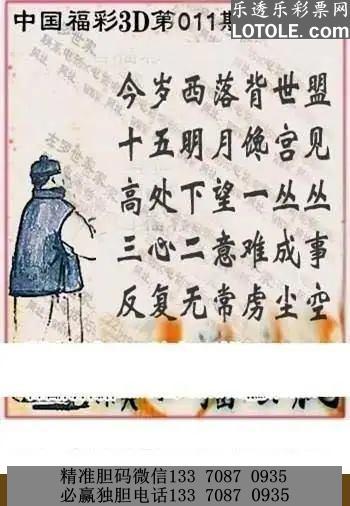 中国福彩3D第011期
乐透乐彩票网
LOTOLE.COM
今岁西落背世盟
十五明月馋宫见
高处下望一丛丛
三心二意难成事
反复无常虏尘空
精准胆码微信133 7087 0935
必赢独胆电话133 7087 0935